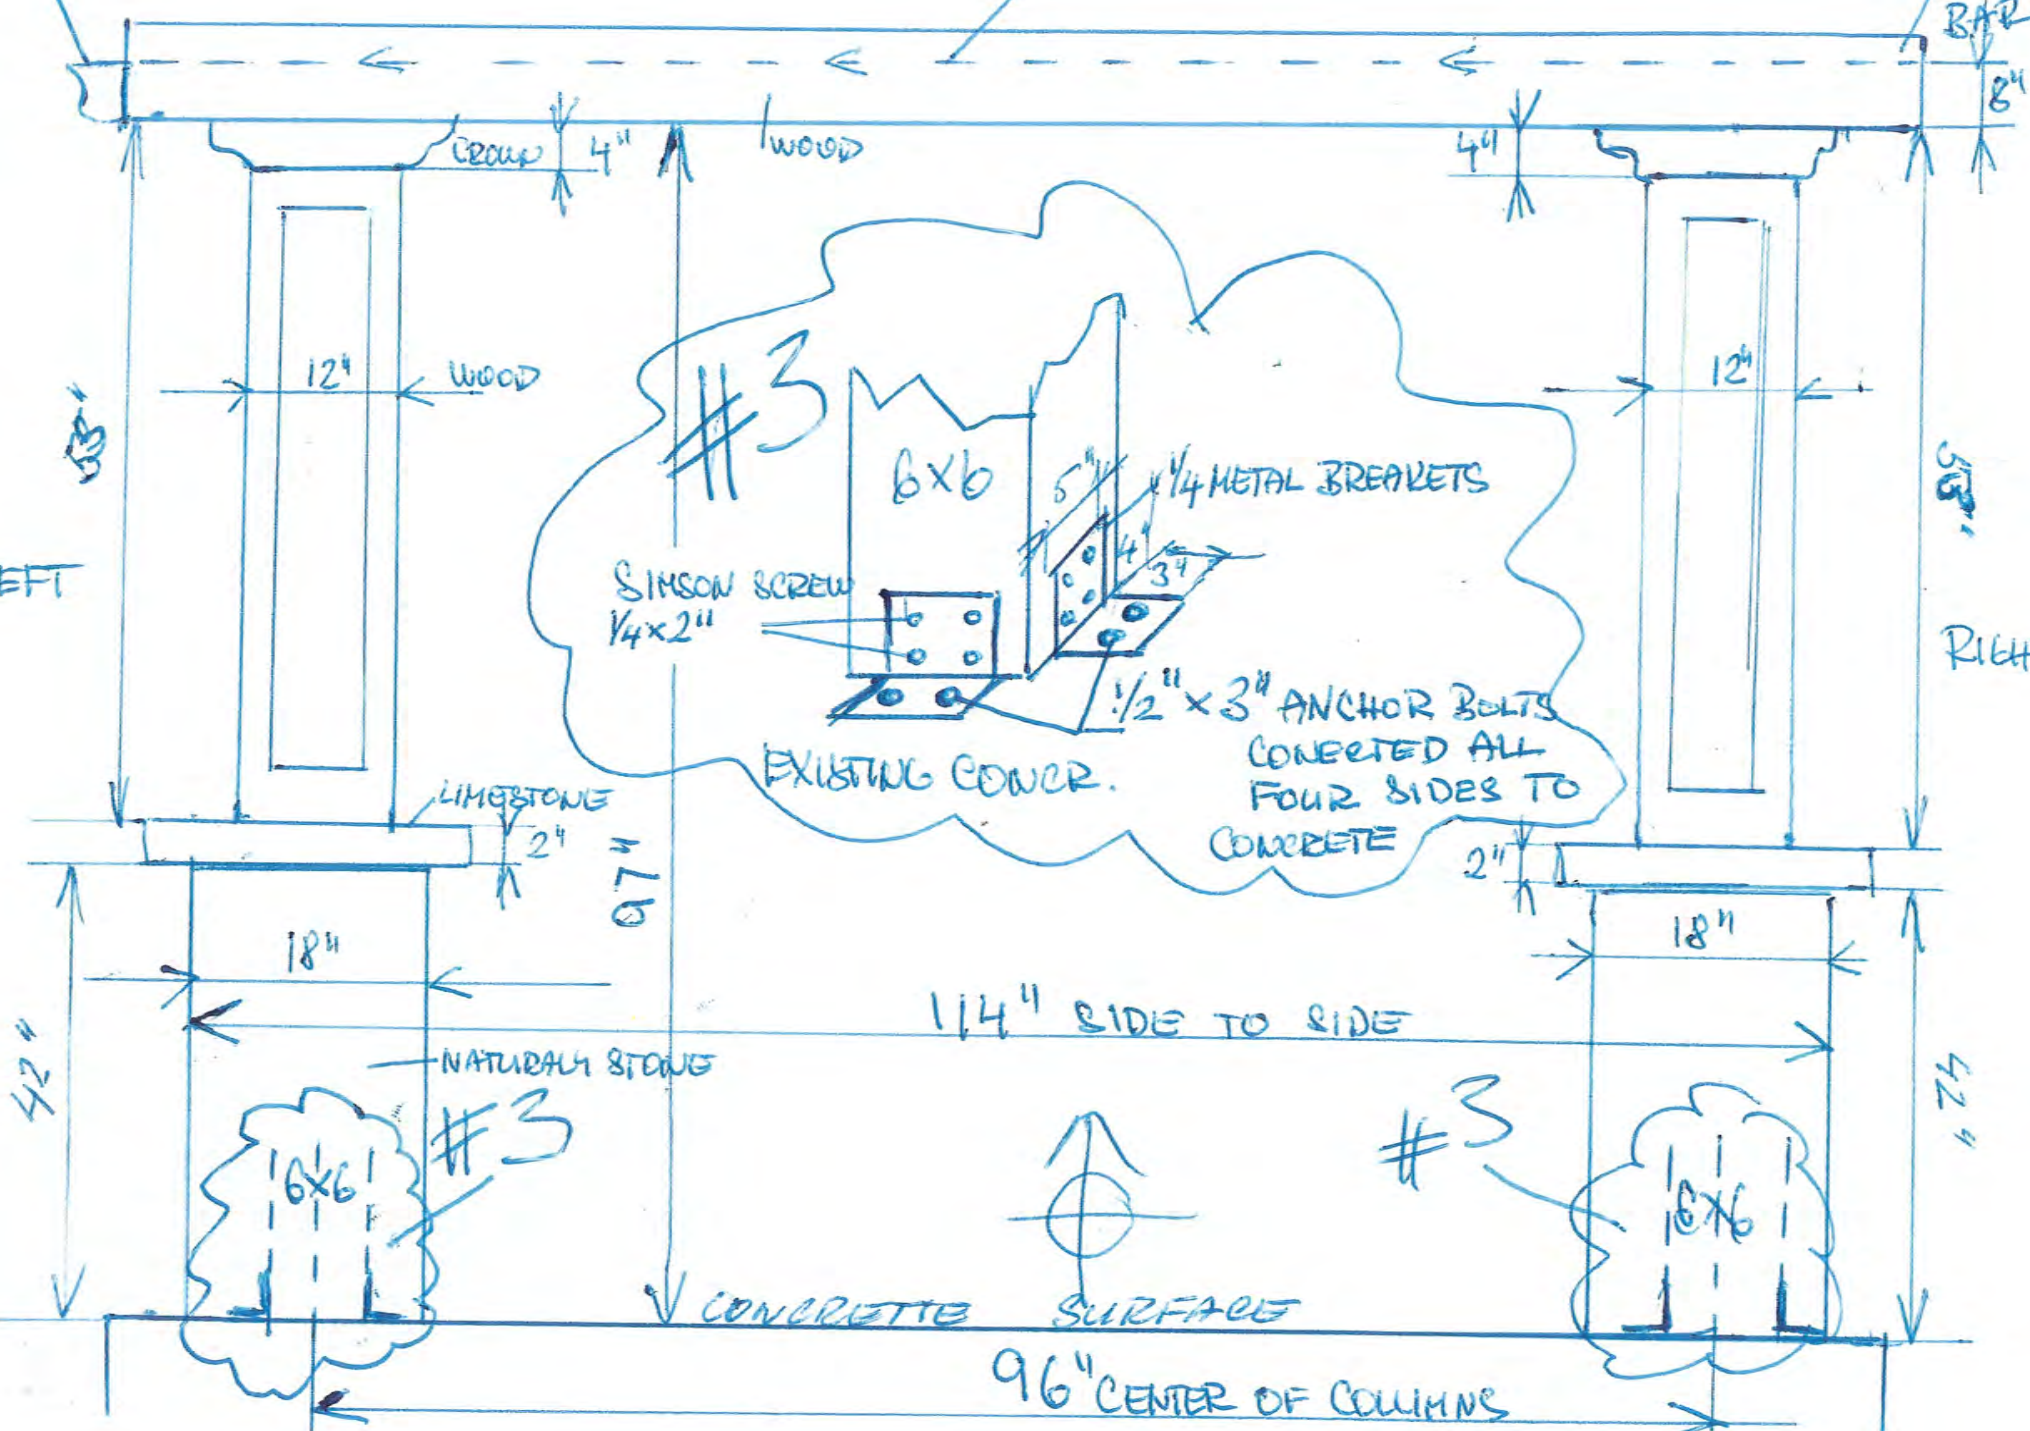 BAR
8"
CROWN
4"
WOOD
4"
#3
12"
WOOD
12"
53"
53"
6X6
5"
1/4 METAL BREAKETS
4"
3"
SIMSON SCREW
1/4x2"
EFT
RIGH
1/2" x 3" ANCHOR BOLTS
CONECTED ALL
FOUR SIDES TO
CONCRETE
EXISTING CONCR.
LIMESTONE
2"
97"
2"
18"
18"
114" SIDE TO SIDE
42"
NATURALY STONE
42"
#3
#3
6X6
6X6
CONCRETTE SURFACE
96" CENTER OF COLUMNS